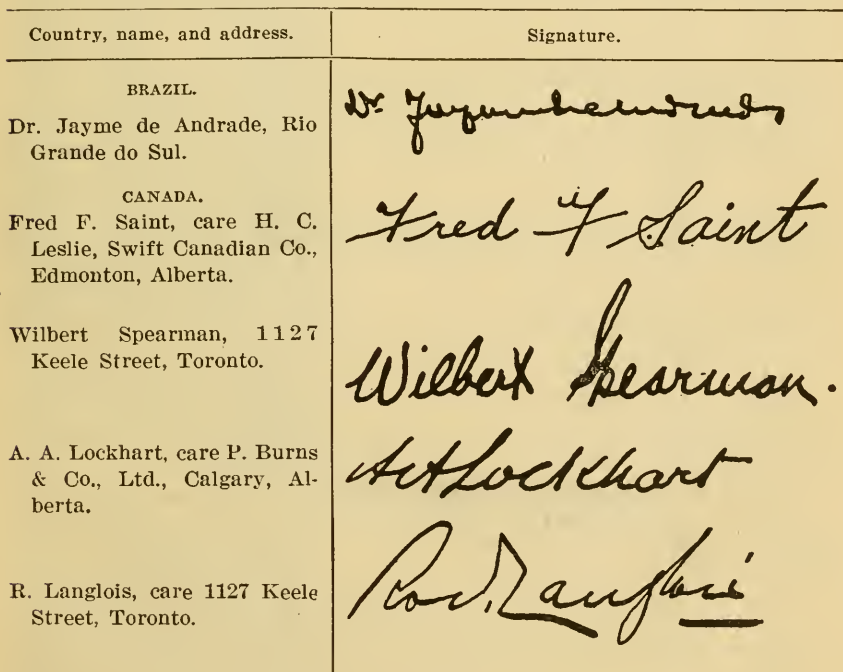 Country, name, and address.
Signature.
BRAZIL.
Dr. Jayme de Andrade, Rio
Grande do Sul.
Dr.
CANADA.
Fred F. Saint, care H. C.
Leslie, Swift Canadian Co.,
Edmonton, Alberta.
Fred F Saint
Wilbert Spearman, 1127
Keele Street, Toronto.
Wilbert Spearman.
A. A. Lockhart, care P. Burns
& Co., Ltd., Calgary, Al-
berta.
AALockhart
R. Langlois, care 1127 Keele
Street, Toronto.
Langlois